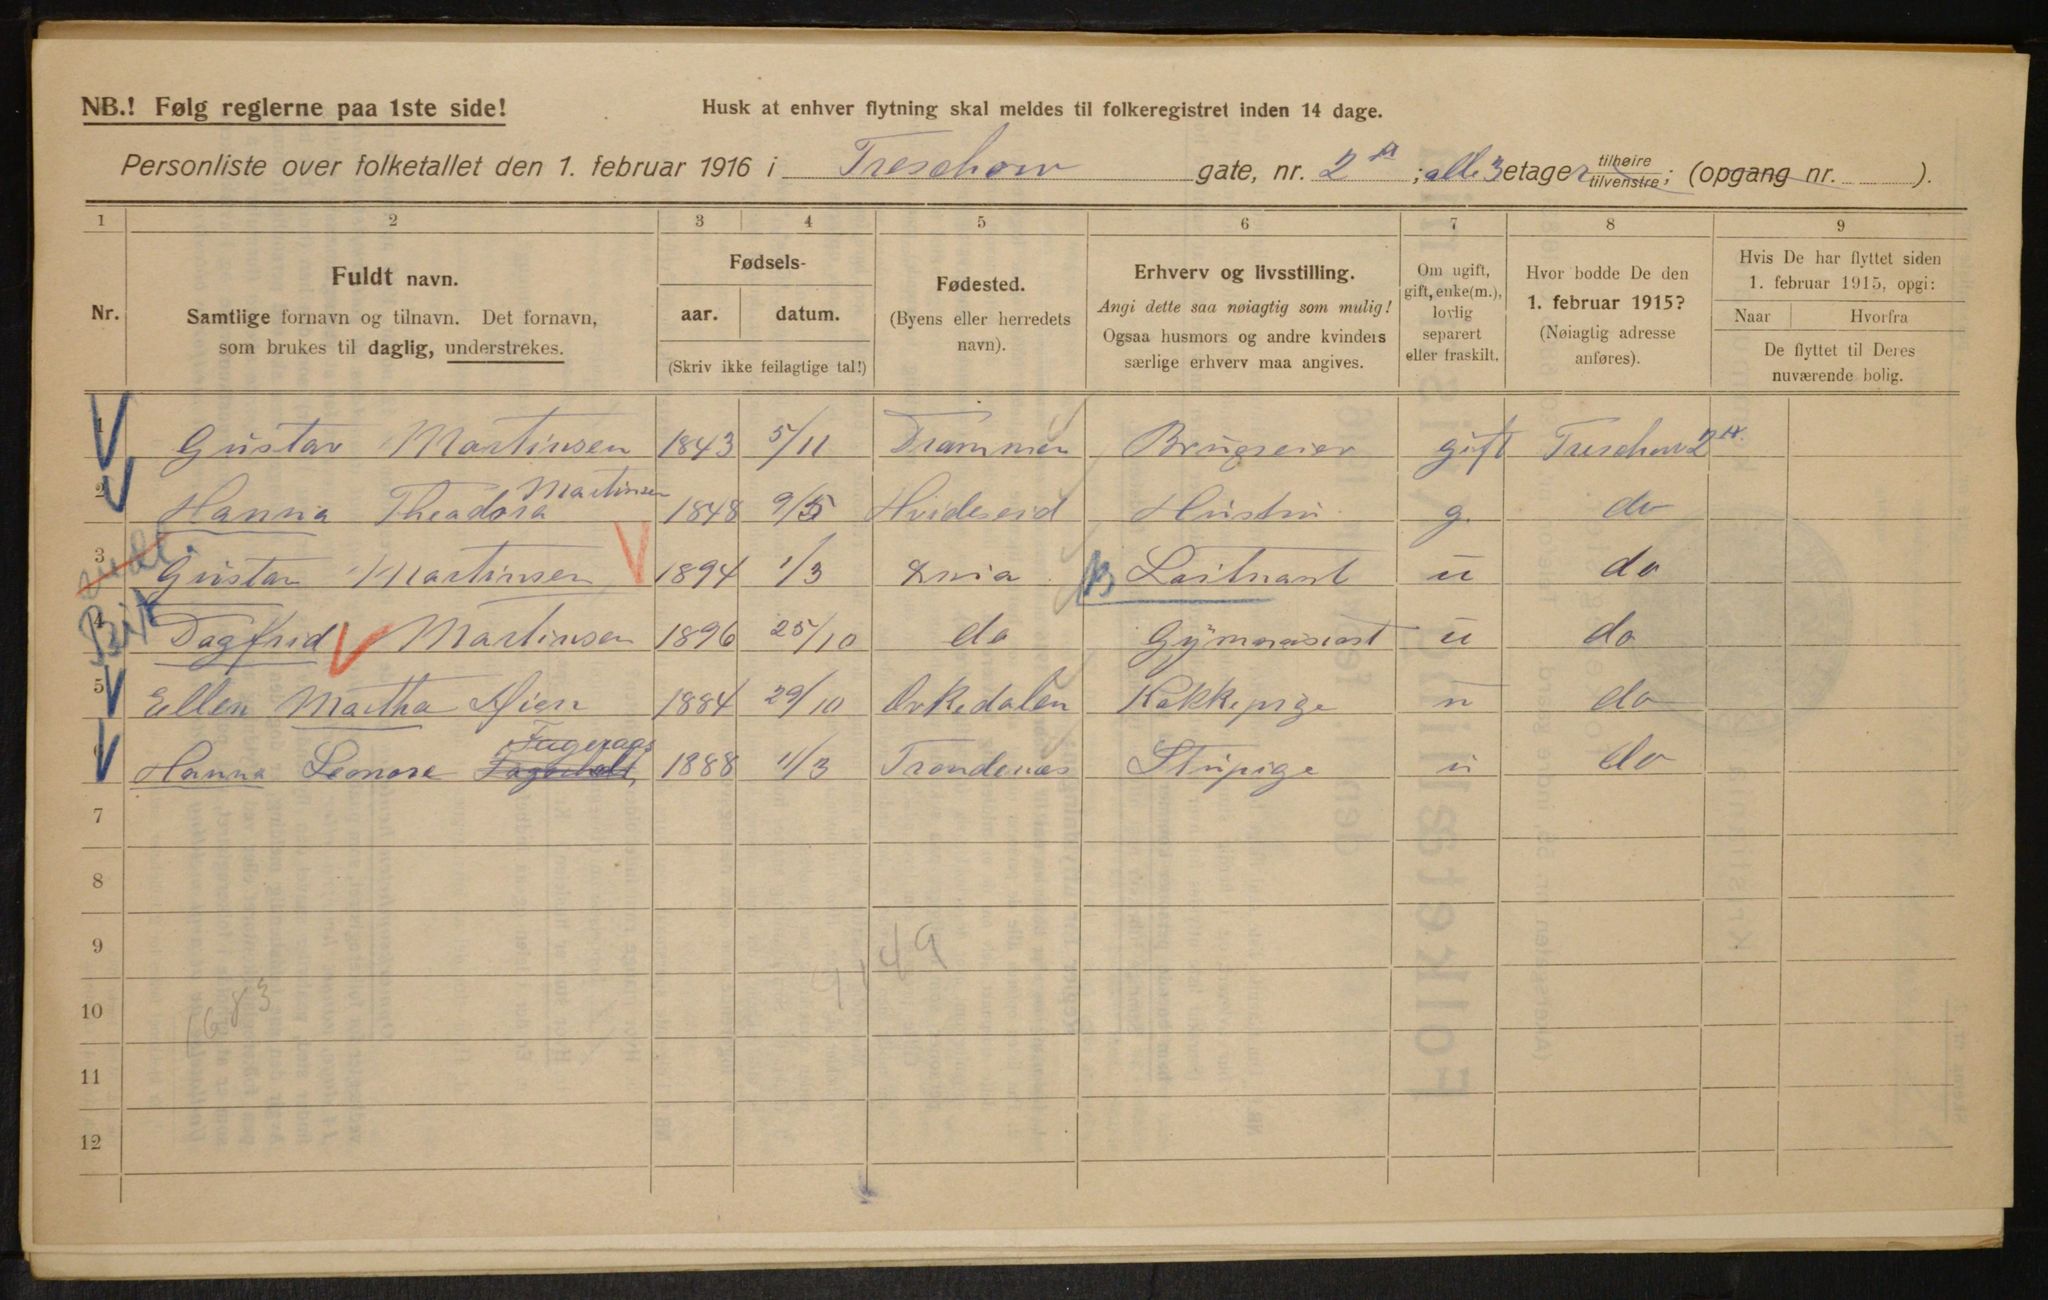 NB.! Følg reglerne paa 1ste side!
Husk at enhver flytning skal meldes til folkeregistret inden 14 dage.
Personliste over folketallet den 1. februar 1916 i Treschow gate, nr. 2 a ; alle 3 etager tilhøire tilvenstre; (opgang nr. ).
1 2 3 4 5 6 7 8 9
Nr.
Fuldt navn.
Samtlige fornavn og tilnavn. Det fornavn,
som brukes til daglig, understrekes.
Fødsels-
aar. datum.
(Skriv ikke feilagtige tal!)
Fødested.
(Byens eller herredets
navn).
Erhverv og livsstilling.
Angi dette saa nøiagtig som mulig!
Ogsaa husmors og andre kvinders
særlige erhverv maa angives.
Om ugift,
gift, enke(m.),
lovlig
separert
eller fraskilt.
Hvor bodde De den
1. februar 1915?
(Nøiagtig adresse
anføres).
Hvis De har flyttet siden
1. februar 1915, opgi:
Naar Hvorfra
De flyttet til Deres
nuværende bolig.
1 Gustav Martinsen 1843 5/11 Drammen Brugseier gift Treschow 2 a.
2 Hanna Theadora Martinsen 1848 9/5 Hvideseid Hustru g. do
3 Gustav Martinsen 1894 1/3 Xnia Løitnant u do
4 Dagfrid Martinsen 1896 25/10 do Gymnasiast u do
5 Ellen Martha Dien 1884 29/10 Orkedalen Kokkepige u do
6 Hanna Leonore 1888 11/3 Trondenæs Stupige u do
7
8
9
9149
10
1683
11
12